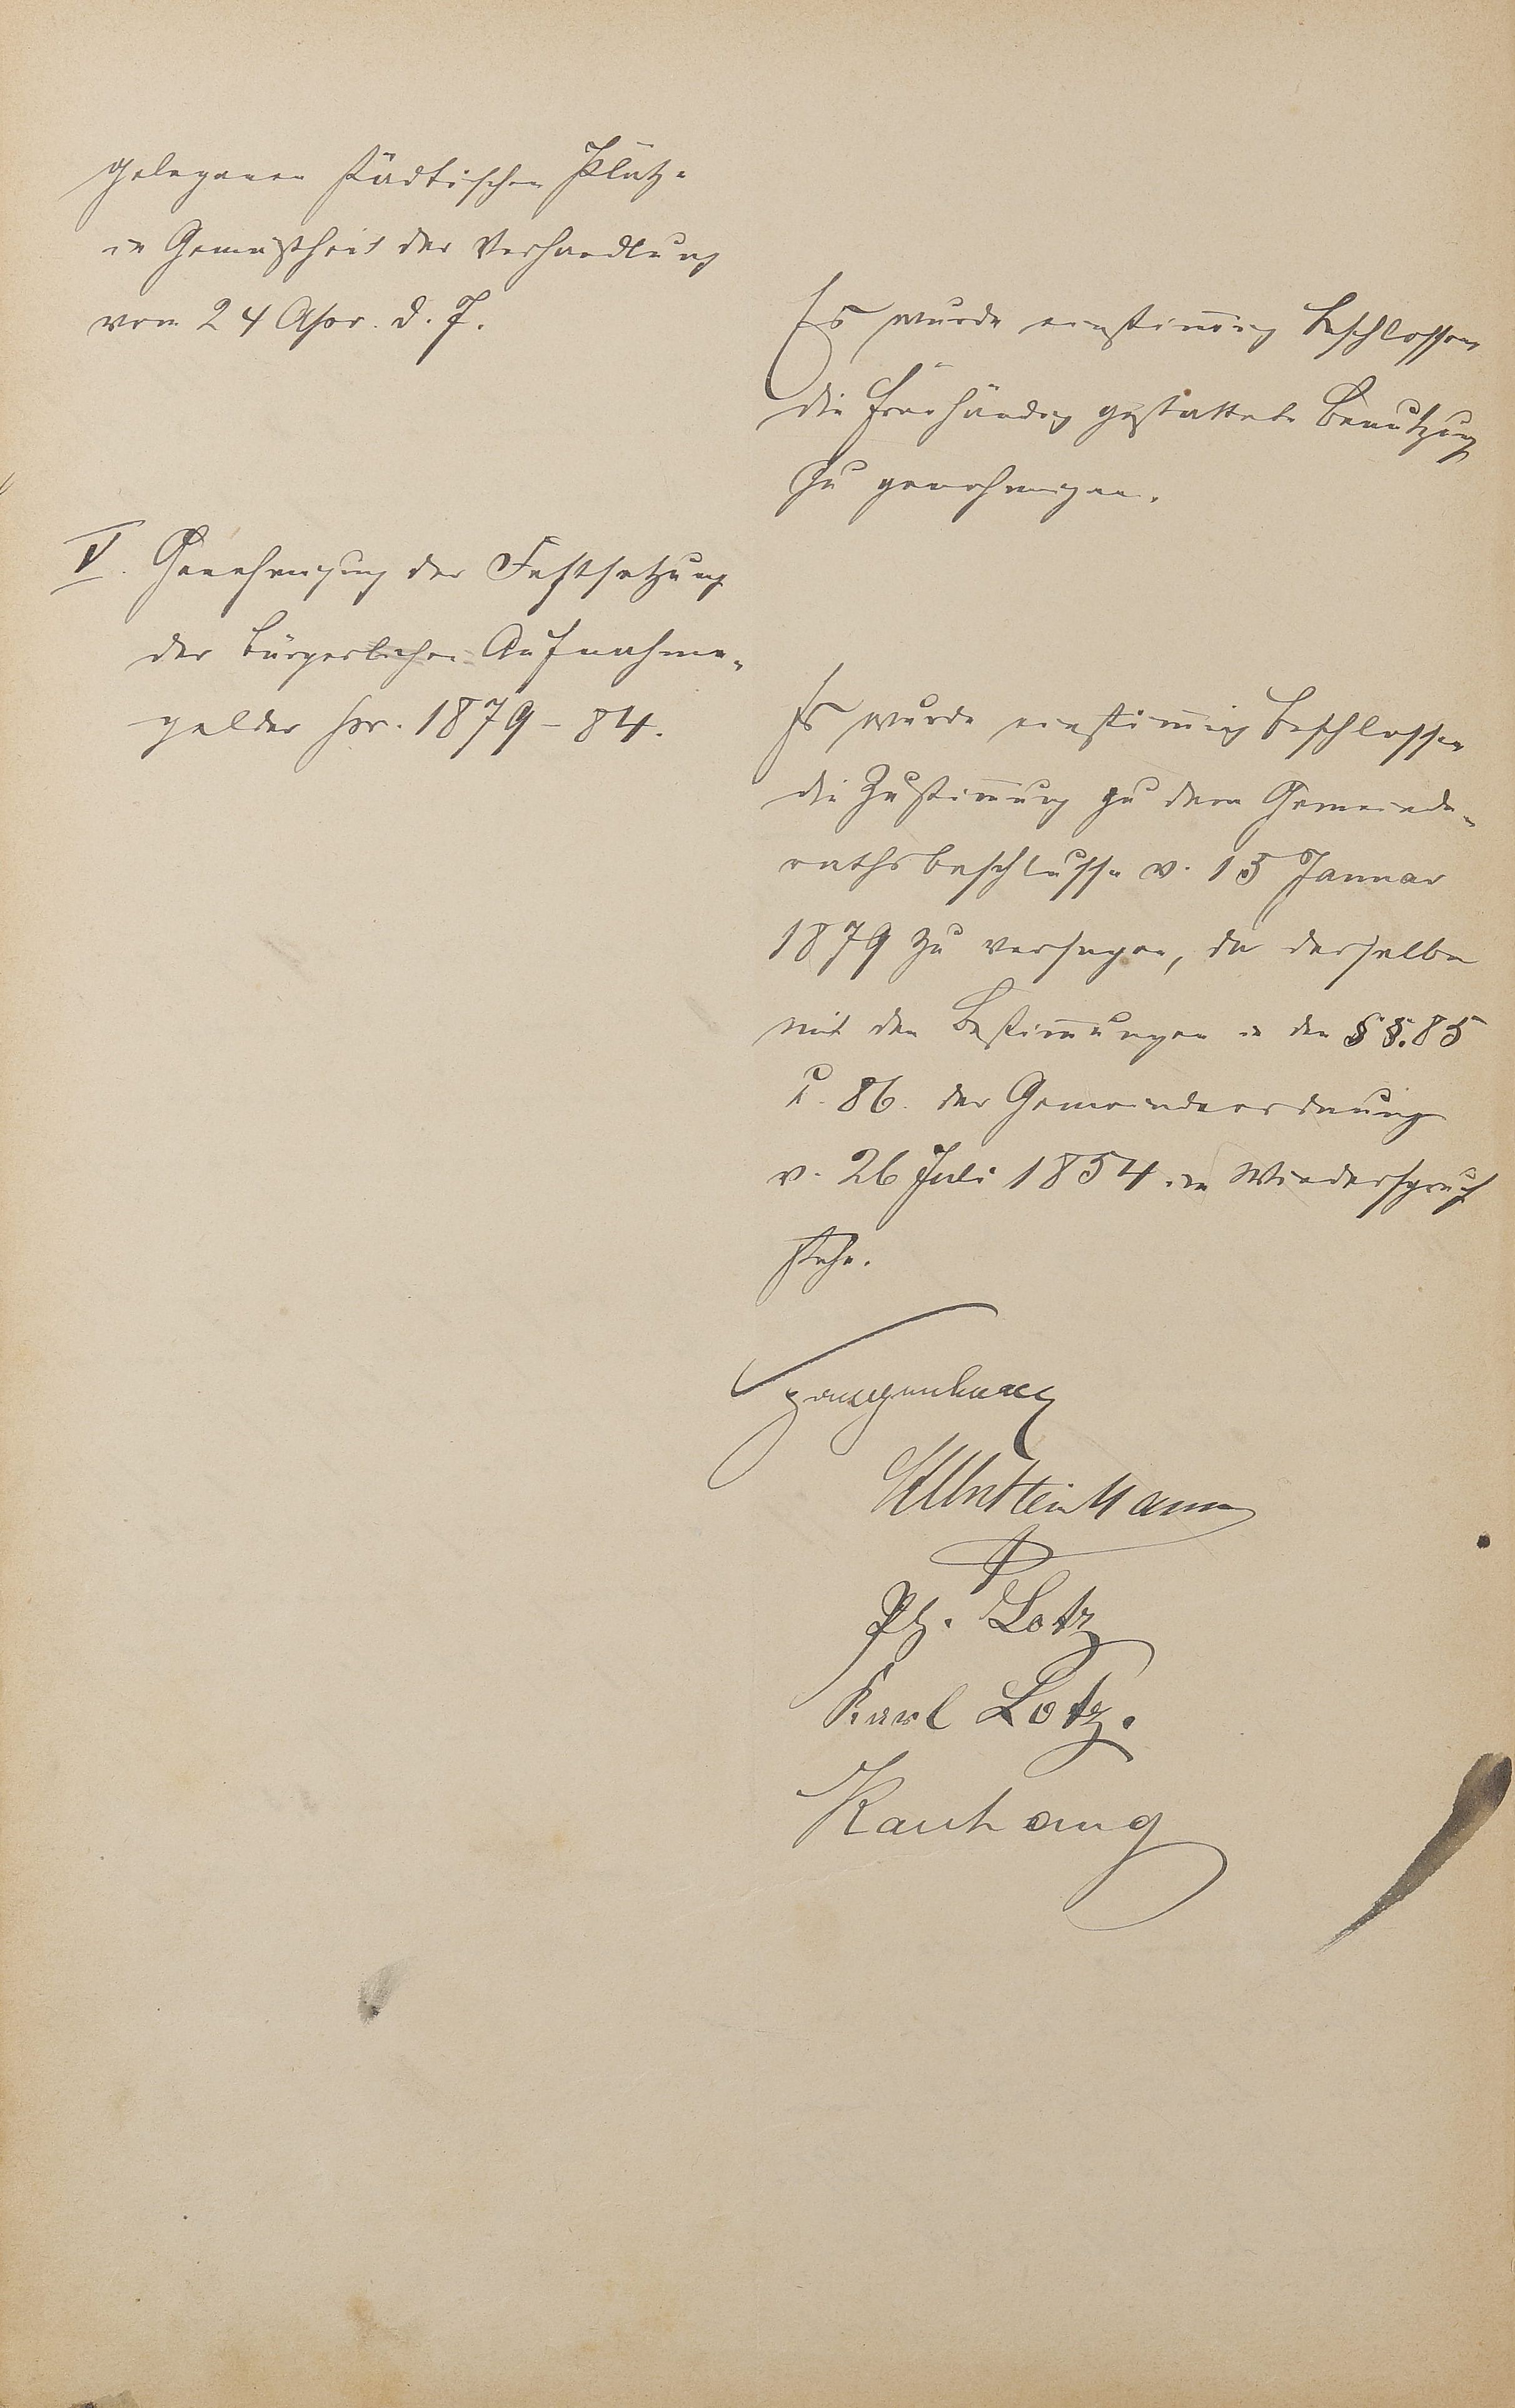 gelegenen städtischen Plätze
in Gemäßheit der Verhandlung
vom 24 Apr. d. J.
Es wurde einstimmig beschlossen
die freihändig gestattete Benutzung
zu genehmigen.
V. Genehmigung der Festsetzung
der bürgerlichen Aufnahme-
gelder pr. 1879-84.
Es wurde einstimmig beschlossen
die Zustimmung zu dem Gemeinde-
rathsbeschlusse v. 15 Januar
1879 zu versagen, da derselbe
mit den Bestimmungen in den §§. 85
u. 86. der Gemeindeordnung
v. 26 Juli 1854 im Wiederspruch
stehe.
Ph. Lotz
Karl Lotz.